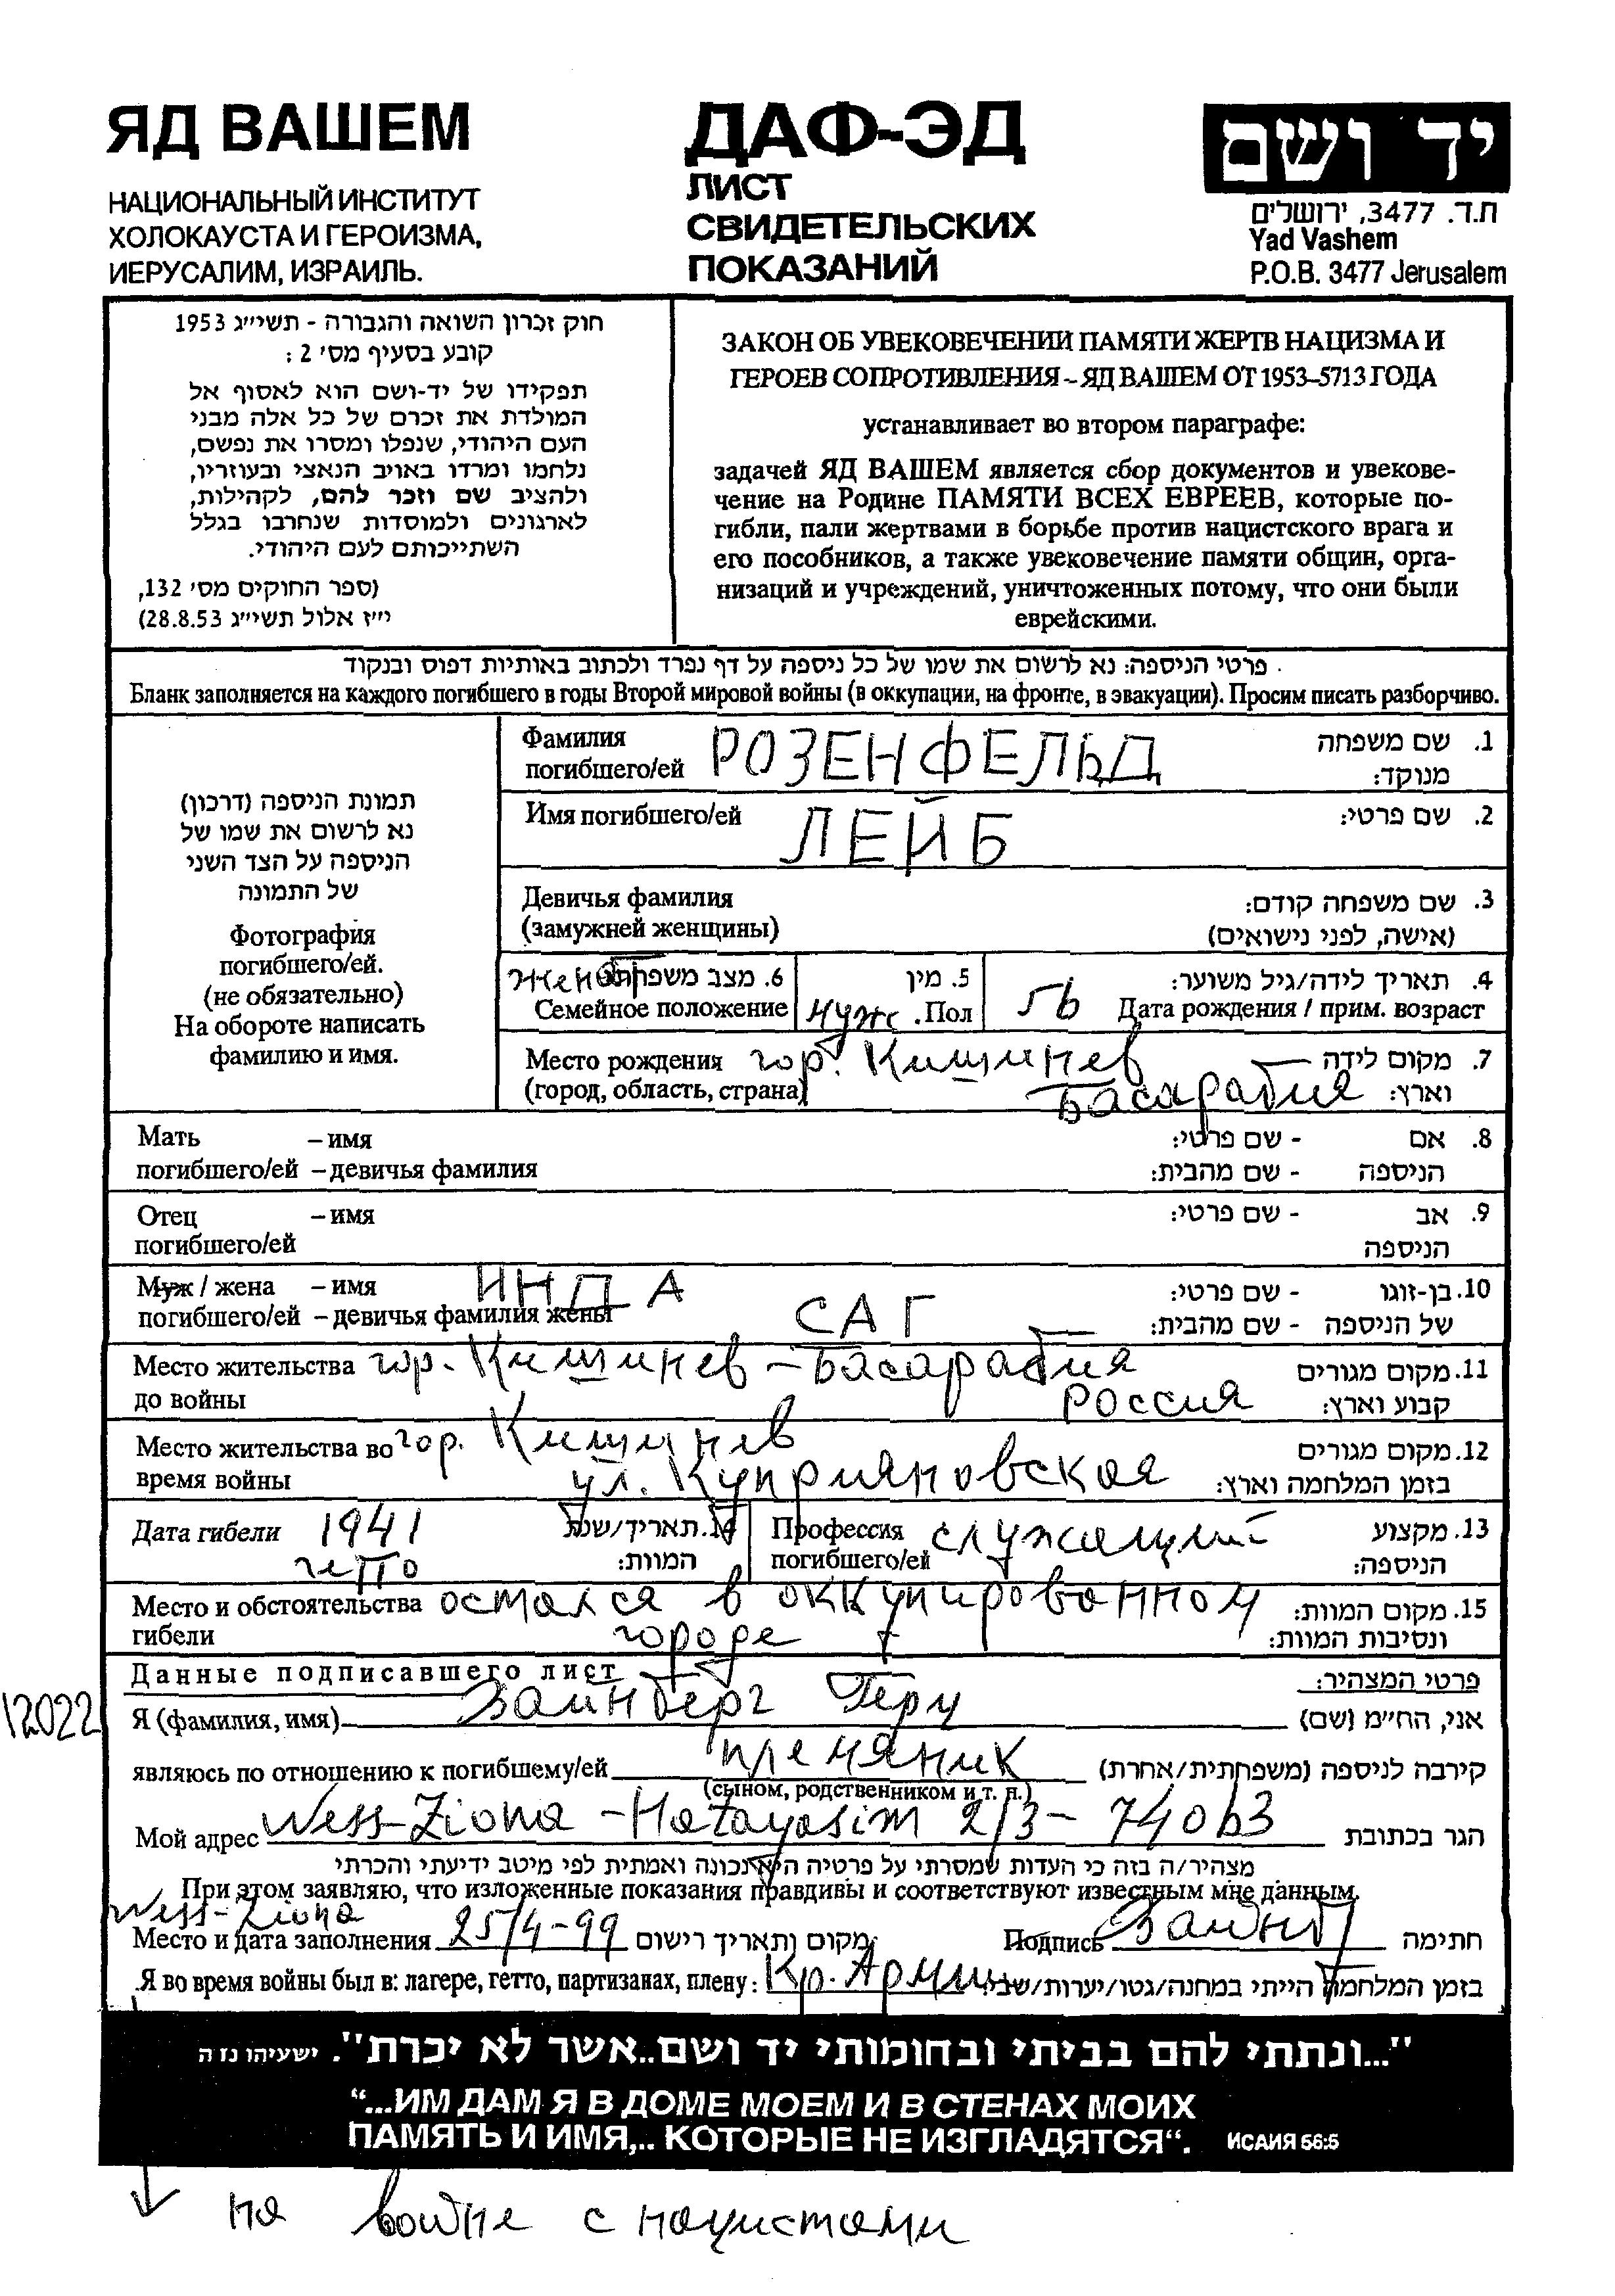 ЯД ВАШЕМ
НАЦИОНАЛЬНЫЙ ИНСТИТУТ
ХОЛОКАУСТА И ГЕРОИЗМА,
ИЕРУСАЛИМ, ИЗРАИЛЬ.
ДАФ-ЭД
ЛИСТ
СВИДЕТЕЛЬСКИХ
ПОКАЗАНИЙ
יד ושם
ת.ד. 3477, ירושלים
Yad Vashem
P.O.B. 3477 Jerusalem
חוק זכרון השואה והגבורה - תשי״ג 1953
קובע בסעיף מס׳ 2 :
תפקידו של יד-ושם הוא לאסוף אל
המולדת את זכרם של כל אלה מבני
העם היהודי, שנפלו ומסרו את נפשם,
נלחמו ומרדו באויב הנאצי ובעוזריו,
ולהציב שם וזכר להם, לקהילות,
לארגונים ולמוסדות שנחרבו בגלל
השתייכותם לעם היהודי.
(ספר החוקים מס׳ 132,
י״ז אלול תשי״ג 28.8.53)
ЗАКОН ОБ УВЕКОВЕЧЕНИИ ПАМЯТИ ЖЕРТВ НАЦИЗМА И
ГЕРОЕВ СОПРОТИВЛЕНИЯ – ЯД ВАШЕМ ОТ 1953–5713 ГОДА
устанавливает во втором параграфе:
задачей ЯД ВАШЕМ является сбор документов и увекове-
чение на Родине ПАМЯТИ ВСЕХ ЕВРЕЕВ, которые по-
гибли, пали жертвами в борьбе против нацистского врага и
его пособников, а также увековечение памяти общин, орга-
низаций и учреждений, уничтоженных потому, что они были
еврейскими.
פרטי הניספה: נא לרשום את שמו של כל ניספה על דף נפרד ולכתוב באותיות דפוס ובנקוד
Бланк заполняется на каждого погибшего в годы Второй мировой войны (в оккупации, на фронте, в эвакуации). Просим писать разборчиво.
תמונת הניספה (דרכון)
נא לרשום את שמו של
הניספה על הצד השני
של התמונה
Фотография
погибшего/ей.
(не обязательно)
На обороте написать
фамилию и имя.
Фамилия РОЗЕНФЕЛЬД 1. שם משפחה
погибшего/ей מנוקד:
Имя погибшего/ей ЛЕЙБ 2. שם פרטי:
Девичья фамилия 3. שם משפחה קודם:
(замужней женщины) (אישה, לפני נישואים)
женат 6. מצב משפחתי 5. מין 4. תאריך לידה/גיל משוער:
Семейное положение муж. Пол 56 Дата рождения / прим. возраст
Место рождения гор. Кишинев 7. מקום לידה
(город, область, страна) Басарабия וארץ:
Мать – имя 8. אם - שם פרטי:
погибшего/ей – девичья фамилия הניספה - שם מהבית:
Отец – имя 9. אב - שם פרטי:
погибшего/ей הניספה
Муж / жена – имя ИНДА 10. בן-זוגו - שם פרטי:
погибшего/ей – девичья фамилия жены САГ של הניספה - שם מהבית:
Место жительства гор. Кишинев – Басарабия 11. מקום מגורים
до войны РОССИЯ קבוע וארץ:
Место жительства во гор. Кишинев 12. מקום מגורים
время войны ул. Куприяновская בזמן המלחמה וארץ:
Дата гибели 1941 14. תאריך/שנת Профессия служащий 13. מקצוע
гетто המוות: погибшего/ей הניספה:
Место и обстоятельства остался в оккупированном 15. מקום המוות:
гибели городе ונסיבות המוות:
Данные подписавшего лист פרטי המצהיר:
12022
Я (фамилия, имя) Заинберг Геру אני, הח״מ (שם)
являюсь по отношению к погибшему/ей племяник קירבה לניספה (משפחתית/אחרת)
(сыном, родственником и т. п.)
Мой адрес Ness-Ziona – Hatayasim 2/3 – 74063 הגר בכתובת
מצהיר/ה בזה כי העדות שמסרתי על פרטיה היא נכונה ואמתית לפי מיטב ידיעתי והכרתי
При этом заявляю, что изложенные показания правдивы и соответствуют известным мне данным.
Ness-Ziona
Место и дата заполнения 25/4-99 מקום ותאריך רישום Подпись חתימה
Я во время войны был в: лагере, гетто, партизанах, плену: Кр. Армии בזמן המלחמה הייתי במחנה/גטו/יערות/שבי:
"...ונתתי להם בביתי ובחומותי יד ושם..אשר לא יכרת". ישעיהו נז ה
“...ИМ ДАМ Я В ДОМЕ МОЕМ И В СТЕНАХ МОИХ
ПАМЯТЬ И ИМЯ,.. КОТОРЫЕ НЕ ИЗГЛАДЯТСЯ“. ИСАИЯ 56:5
на войне с нацистами